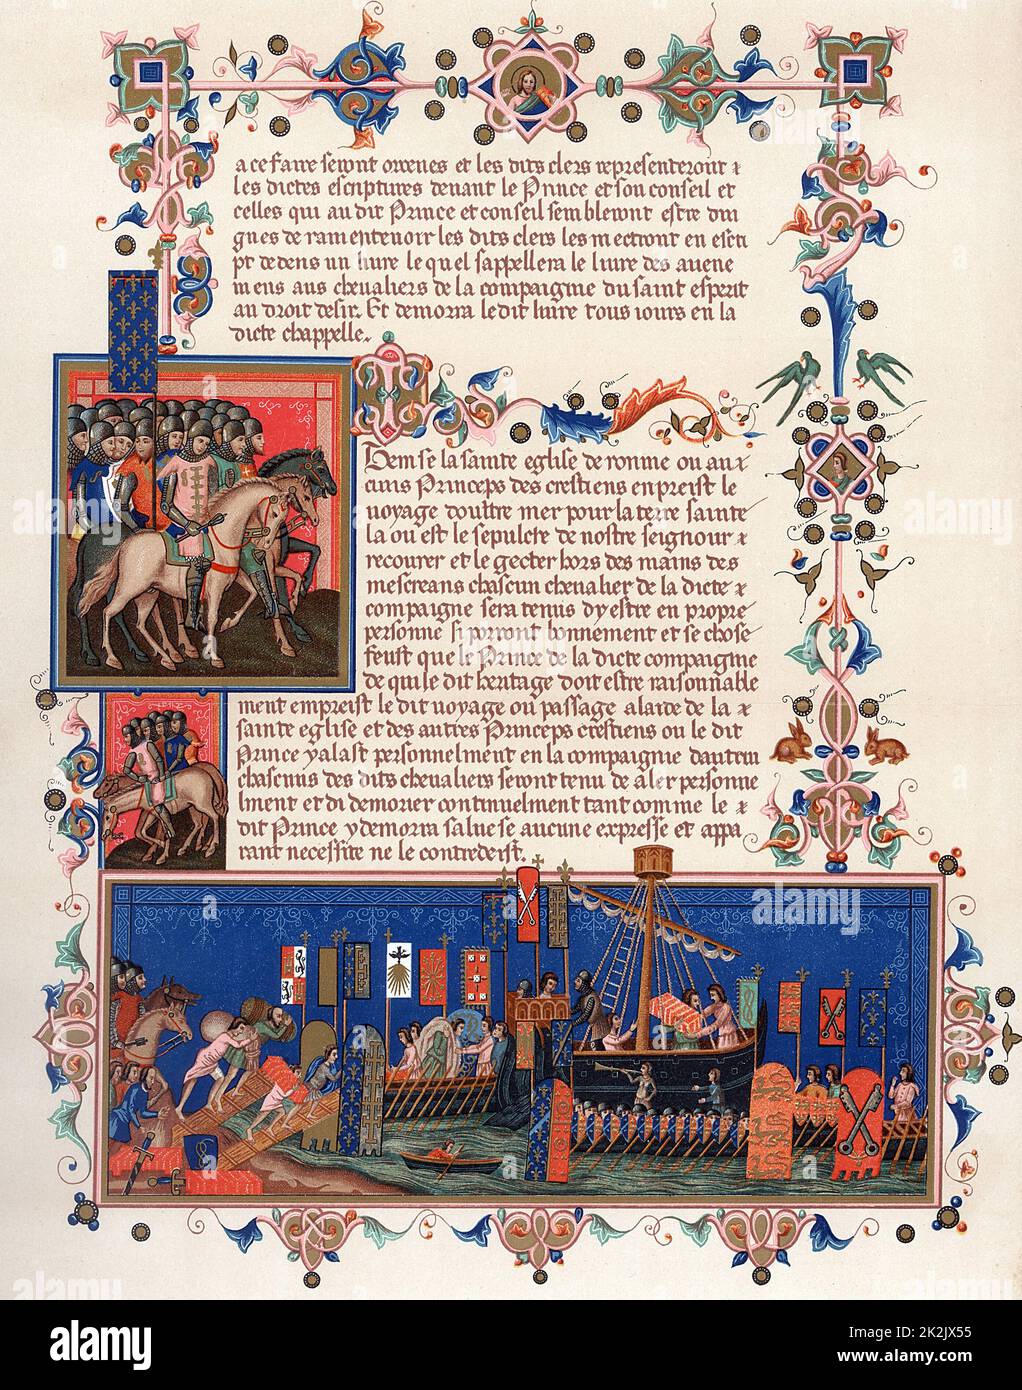 a ce faire seront ordenes et les dits clers representeront z
les dictes escriptures devant le Prince et son conseil et
celles qui au dit Prince et conseil sembleront estre dig
gnes de ramentevoir les dits clers les mectront en escri
pt dedens un livre le quel sappellera le livre des avene
mens aus chevaliers de la compaignie du saint esperit
au droit desir. Et demorra le dit livre tous iours en la
dicte chappelle.
Item se la sainte eglise de romme ou au z
cuns Princeps des crestiens enpreist le
voyage doultre mer pour la terre sainte
la ou est le sepulcre de nostre seignour z
recourer et le gecter hors des mains des
mescreans chascun chevalier de la dicte z
compaigne sera tenus dy estre en propre
personne si porront bonnement et se chose
feust que le Prince de la dicte compaigme
de qui le dit heritage doit estre raisonnable
ment empreist le dit voyage ou passage alaide de la z
sainte eglise et des autres Princeps crestiens ou le dit
Prince y alast personnelment en la compaignie dautrui
chascuns des dits chevaliers seront tenu de aler personne
lment et di demorer continuelment tant comme le z
dit Prince y demorra salve se aucune expresse et appa
rant necessite ne le contredeist.
alamy
Image ID: 2K2JX55
www.alamy.com